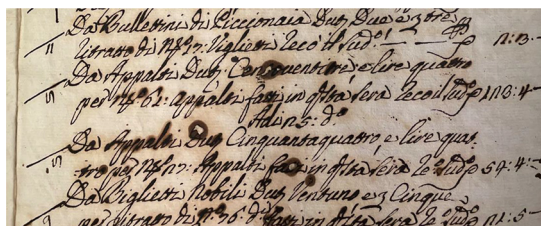 Da Bullettini di Piccionaia Dutj Due e 3 tre
ritratto di N° Viglietti recò il sud.º 2:3:-
Da Appalti Dutj Centoventitre e lire quattro
per N° 61: appalti fatti in q.sta sera recò il sud.º 123:4-
Adi 25: d.º
Da Appalti Dutj Cinquantaquattro e lire quat-
tro per N° 27: Appalti fatti in q.sta sera re.º sud.º 54:4:-
Da Biglietti Nobili Dutj Ventuno e 3 Cinque
per ritratto di N° 36 d.º fatti in q.sta sera re.º sud.º 21:5-